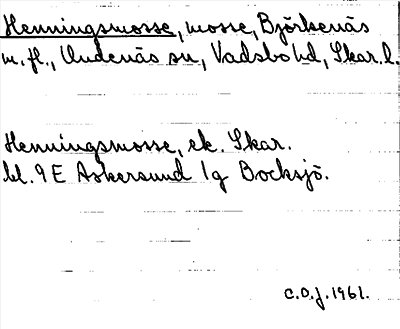 Henningsmosse, mosse, Björkenäs
m. fl., Undenäs sn, Vadsbo hd, Skar. l.
Henningsmosse, ek. Skar.
bl. 9E Askersund 1g Bocksjö.
C.O.J. 1961.